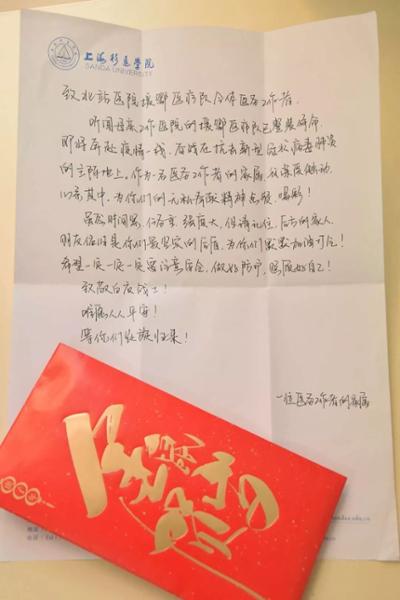 上海杉达学院
SANDA UNIVERSITY
致北站医院援鄂医疗队全体医务工作者:
听闻母亲工作医院的援鄂医疗队已整装待命
即将奔赴疫情一线,奋战在抗击新型冠状病毒肺炎
的主阵地上。作为一名医务工作者的家属,我深受触动,
其中,为你们的无私奉献精神点赞、喝彩!
虽然时间紧、任务重、强度大,但请记住,后方的家人、
朋友依旧是你们最坚实的后盾,为你们默默加油打气!
希望一定一定一定要注意安全,做好防护,照顾好自己!
致敬白衣战士!
唯愿人人平安!
等你们凯旋归来!
一位医务工作者的家属